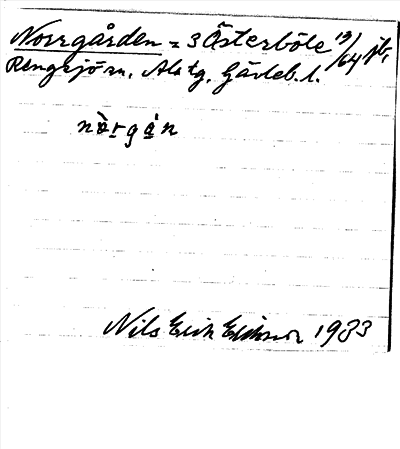 Norrgården = 3 Österböle 13/64 jb,
Rengsjö sn, Ala tg. Gävleb. l.
nò̱rgá̱n
Nils Erik Eriksson 1933